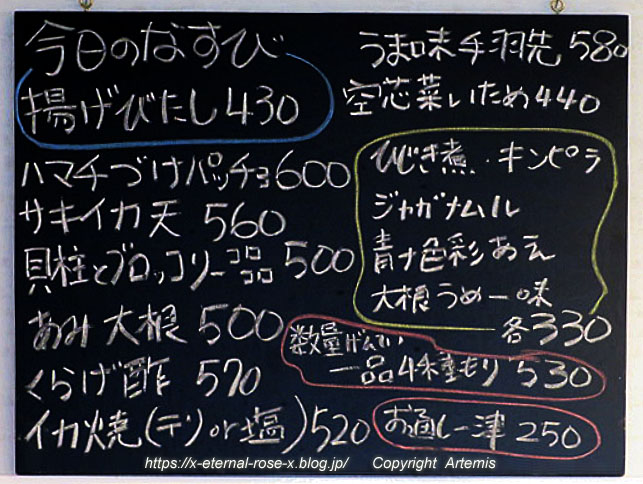 今日のなすび
揚げびたし430
ハマチづけパッチョ600
サキイカ天 560
貝柱とブロッコリーコロコロ 500
あみ大根 500
くらげ酢 570
イカ焼(テリor塩)520
うま味手羽先 580
空芯菜いため440
ひじき煮・キンピラ
ジャガナムル
青菜色彩あえ
大根うめ一味
各330
数量げんてい
一品4種もり 530
お通し一津 250
https://x-eternal-rose-x.blog.jp/ Copyright Artemis